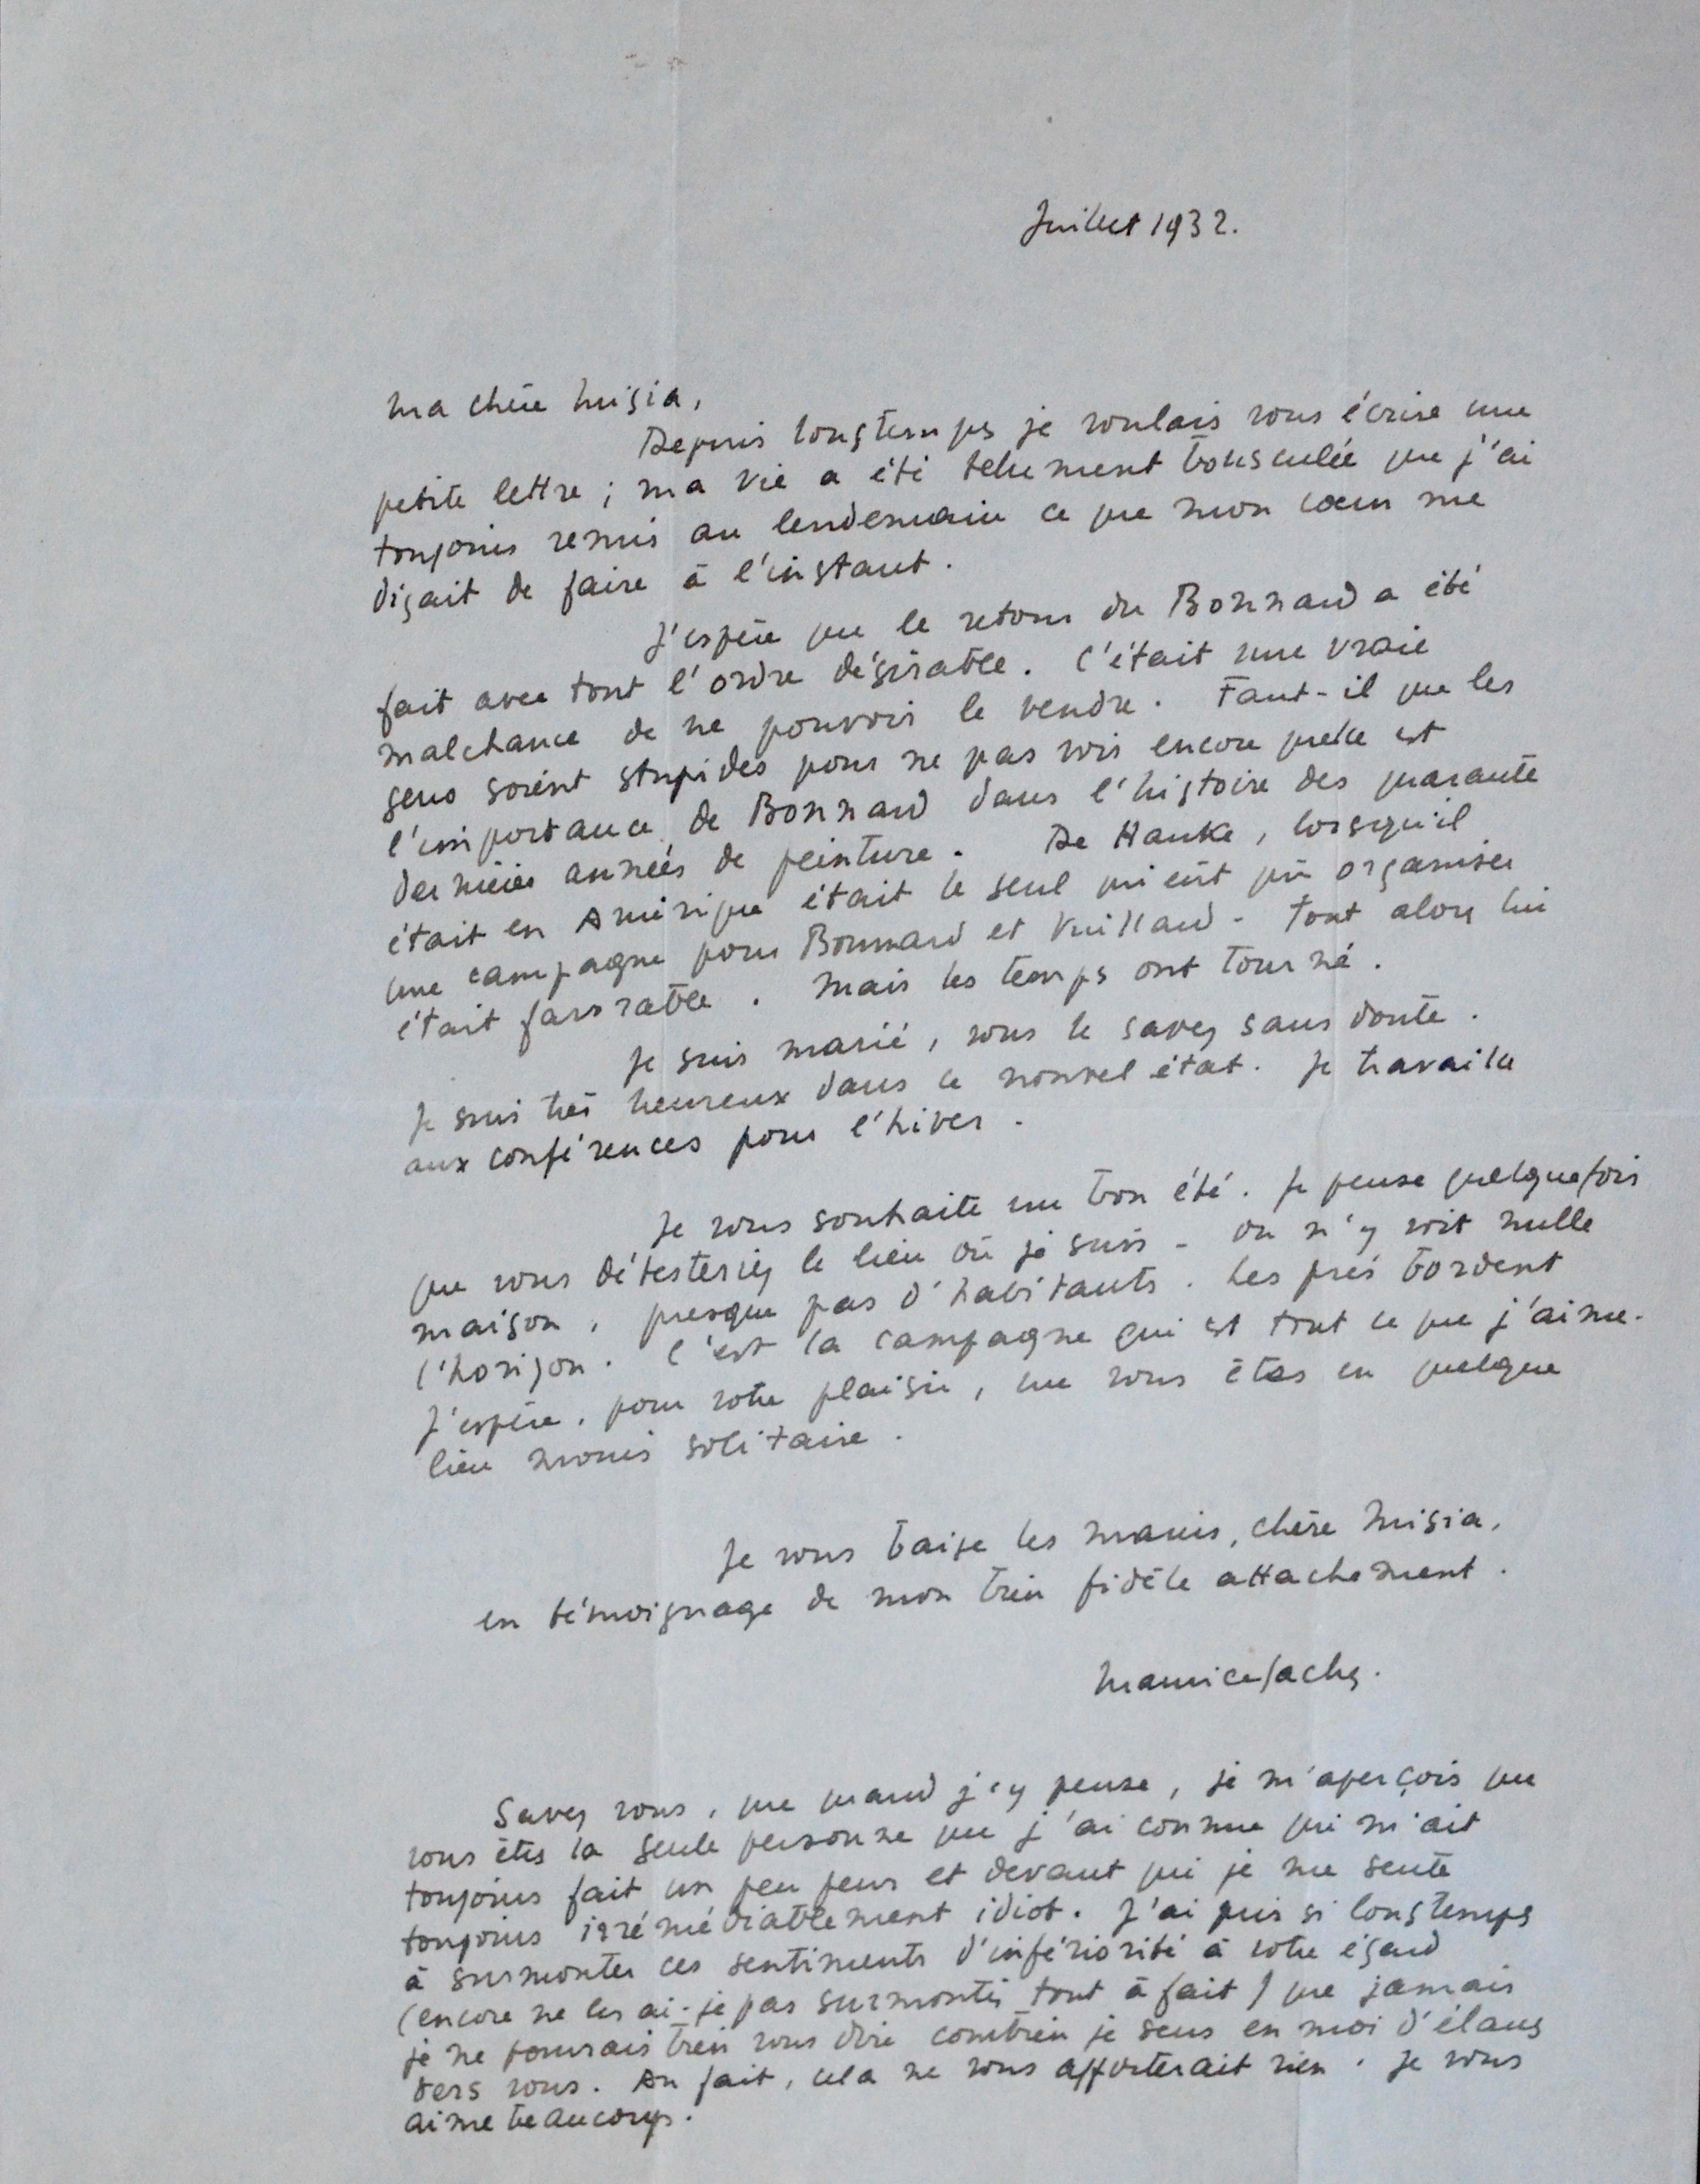 Juillet 1932.
Ma chère Misia,
Depuis longtemps je voulais vous écrire une
petite lettre ; ma vie a été tellement bousculée que j'ai
toujours remis au lendemain ce que mon cœur me
disait de faire à l'instant.
J'espère que le retour du Bonnard a été
fait avec tout l'ordre désirable. C'était une vraie
malchance de ne pouvoir le vendre. Faut-il que les
gens soient stupides pour ne pas voir encore quelle est
l'importance de Bonnard dans l'histoire des quarante
dernières années de peinture. De Hauke, lorsqu'il
était en Amérique était le seul qui eût pû organiser
une campagne pour Bonnard et Vuillard - Tout alors lui
était favorable. Mais les temps ont tourné.
Je suis marié, vous le savez sans doute.
Je suis très heureux dans ce nouvel état. Je travaille
aux conférences pour l'hiver.
Je vous souhaite un bon été. Je pense quelquefois
que vous détesteriez le lieu où je suis - On n'y voit nulle
maison, presque pas d'habitants. Les prés bordent
l'horizon. C'est la campagne qui est tout ce que j'aime.
J'espère, pour votre plaisir, que vous êtes en quelque
lieu moins solitaire.
Je vous baise les mains, chère Misia,
en témoignage de mon bien fidèle attachement.
Maurice Sachs.
Savez vous, que quand j'y pense, je m'aperçois que
vous êtes la seule personne que j'ai connue qui m'ait
toujours fait un peu peur et devant qui je me sente
toujours irrémédiablement idiot. J'ai mis si longtemps
à surmonter ces sentiments d'infériorité à votre égard
(encore ne les ai-je pas surmontés tout à fait) que jamais
je ne pourrais bien vous dire combien je sens en moi d'élans
vers vous. Au fait, cela ne vous apporterait rien. Je vous
aime beaucoup.